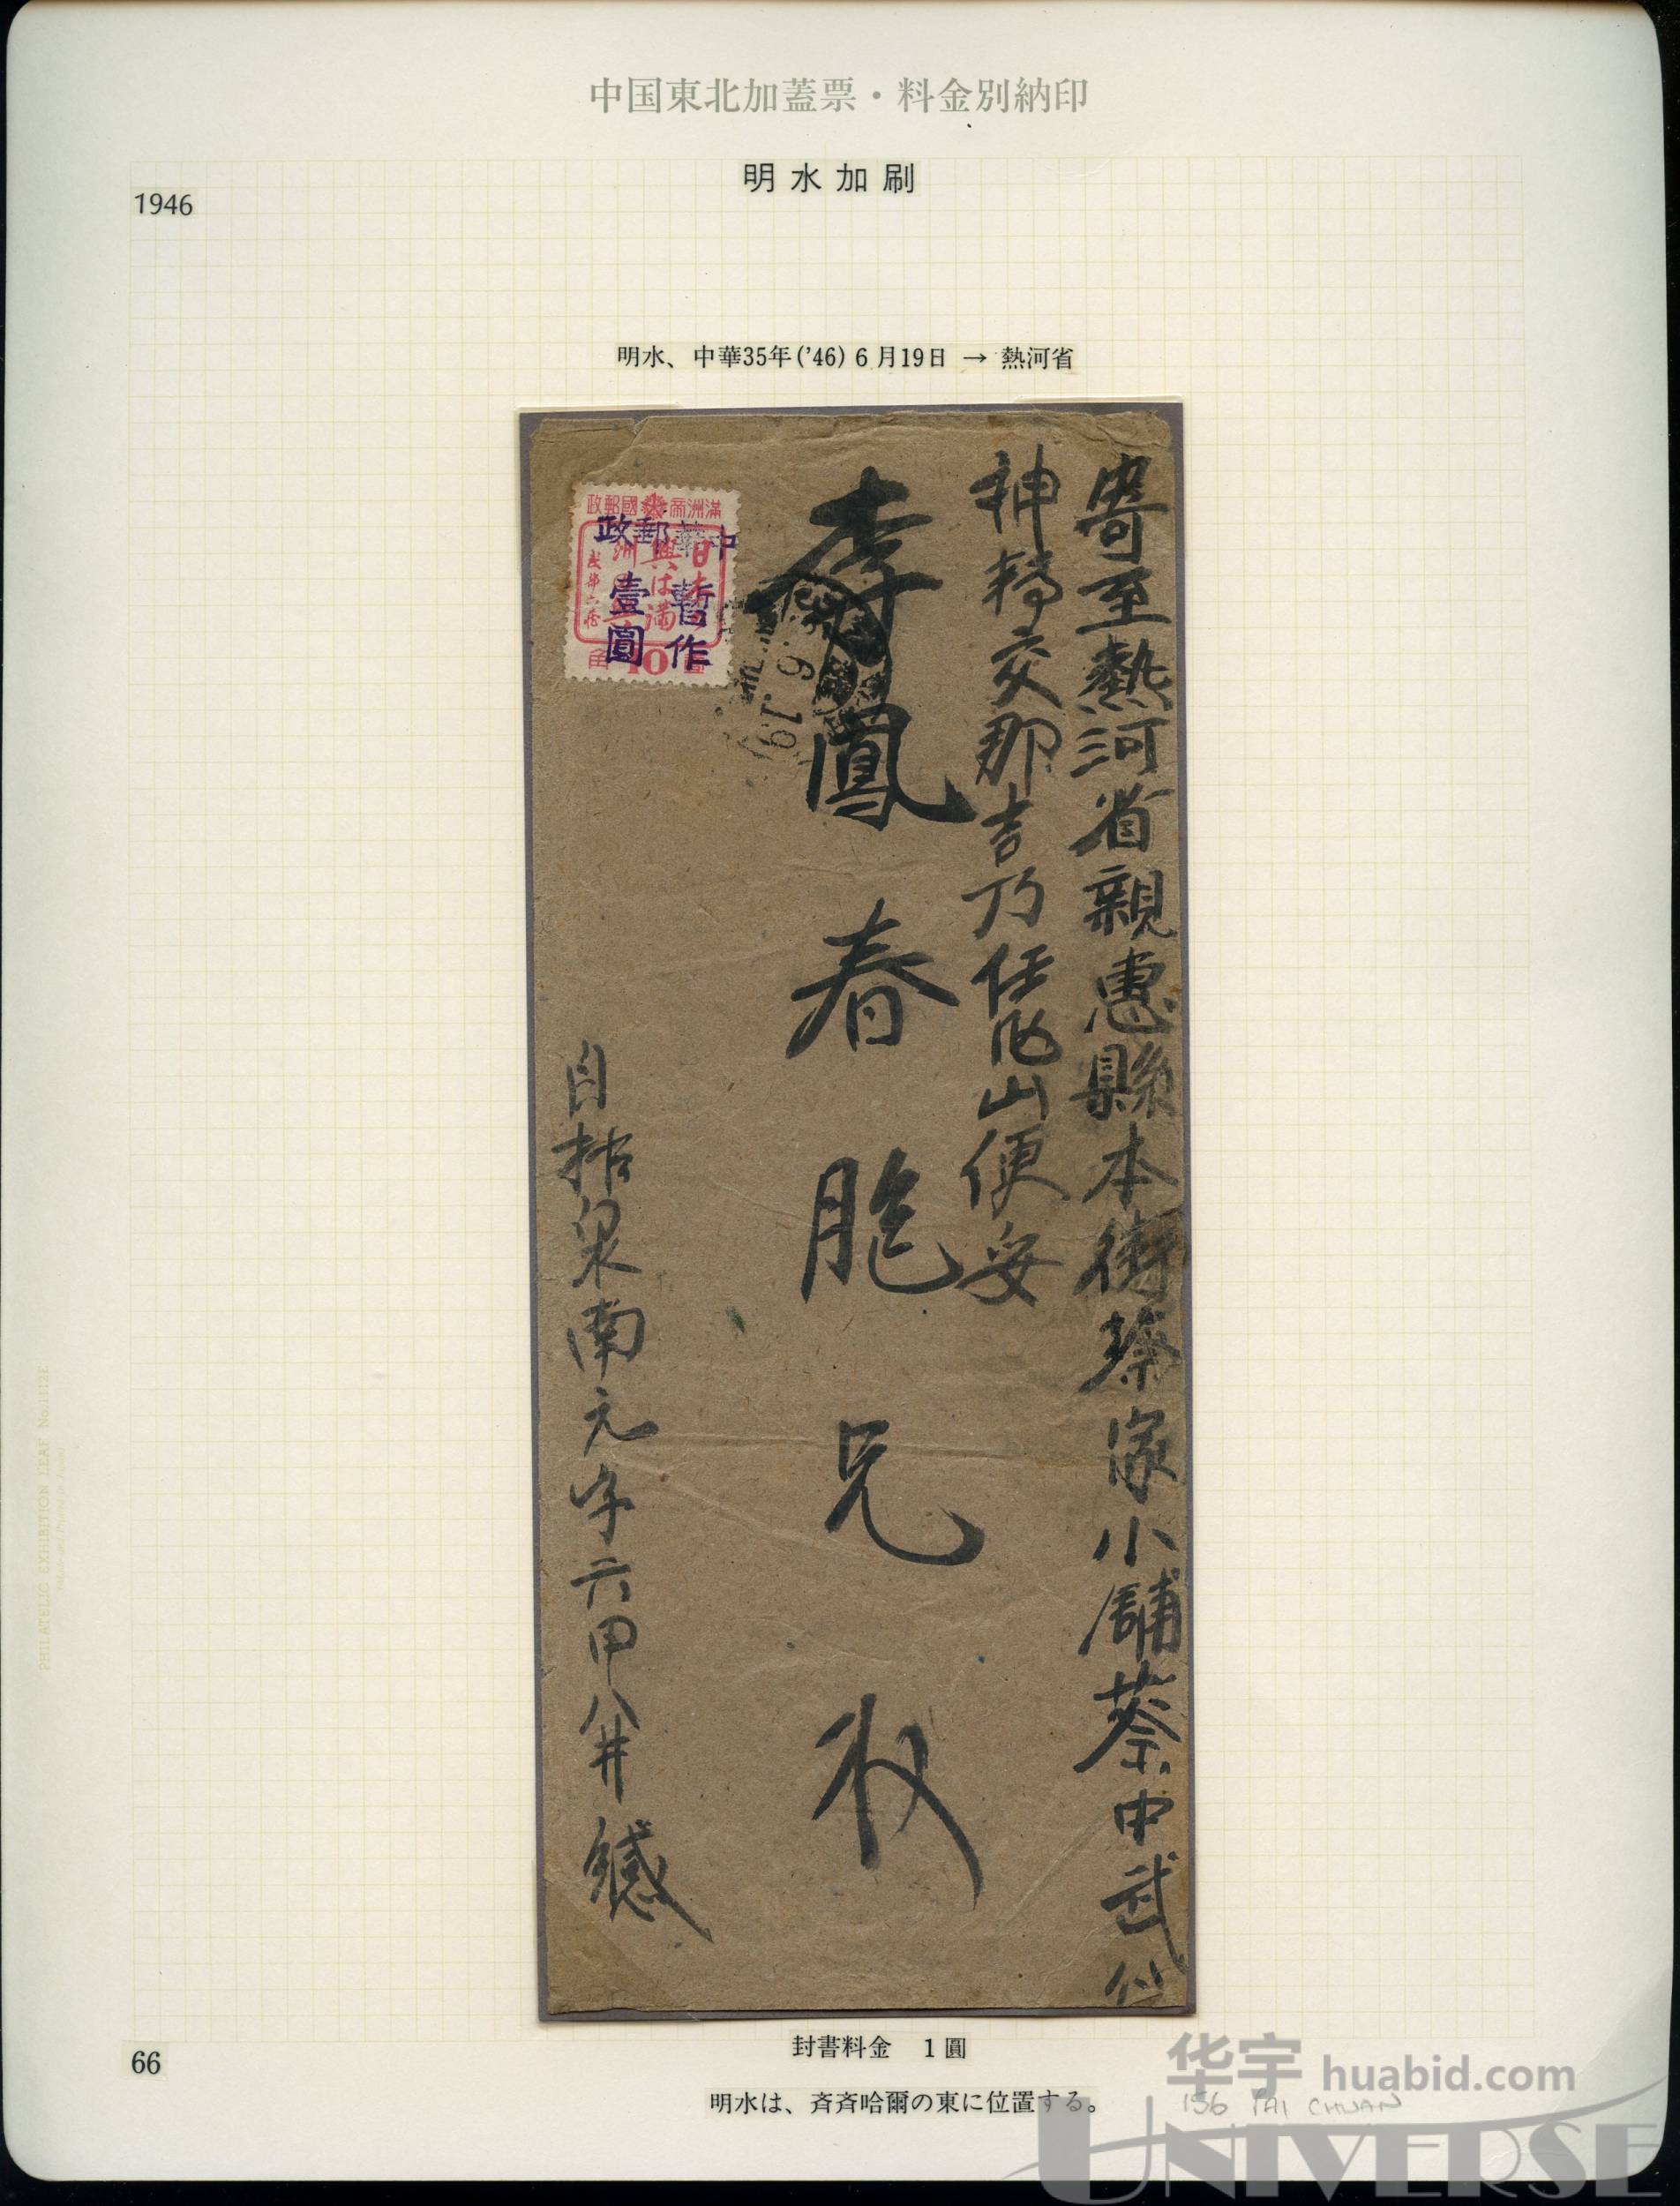 中国東北加蓋票・料金別納印
明水加刷
1946
明水、中華35年('46) 6月19日 → 熱河省
寄至熱河省親惠縣本街蔡家小舖蔡中武
神轉交那吉乃任 山便妥
李鳳春胞兄收
滿洲帝國郵政
中華郵政
暫作
壹圓
10
6.19
自拈泉南元字六甲八井緘
封書料金 1圓
明水は、斉斉哈爾の東に位置する。
66
华宇 huabid.com
UNIVERSE
156 TAI CHUAN
PHILATELIC EXHIBITION LEAF No.1112E